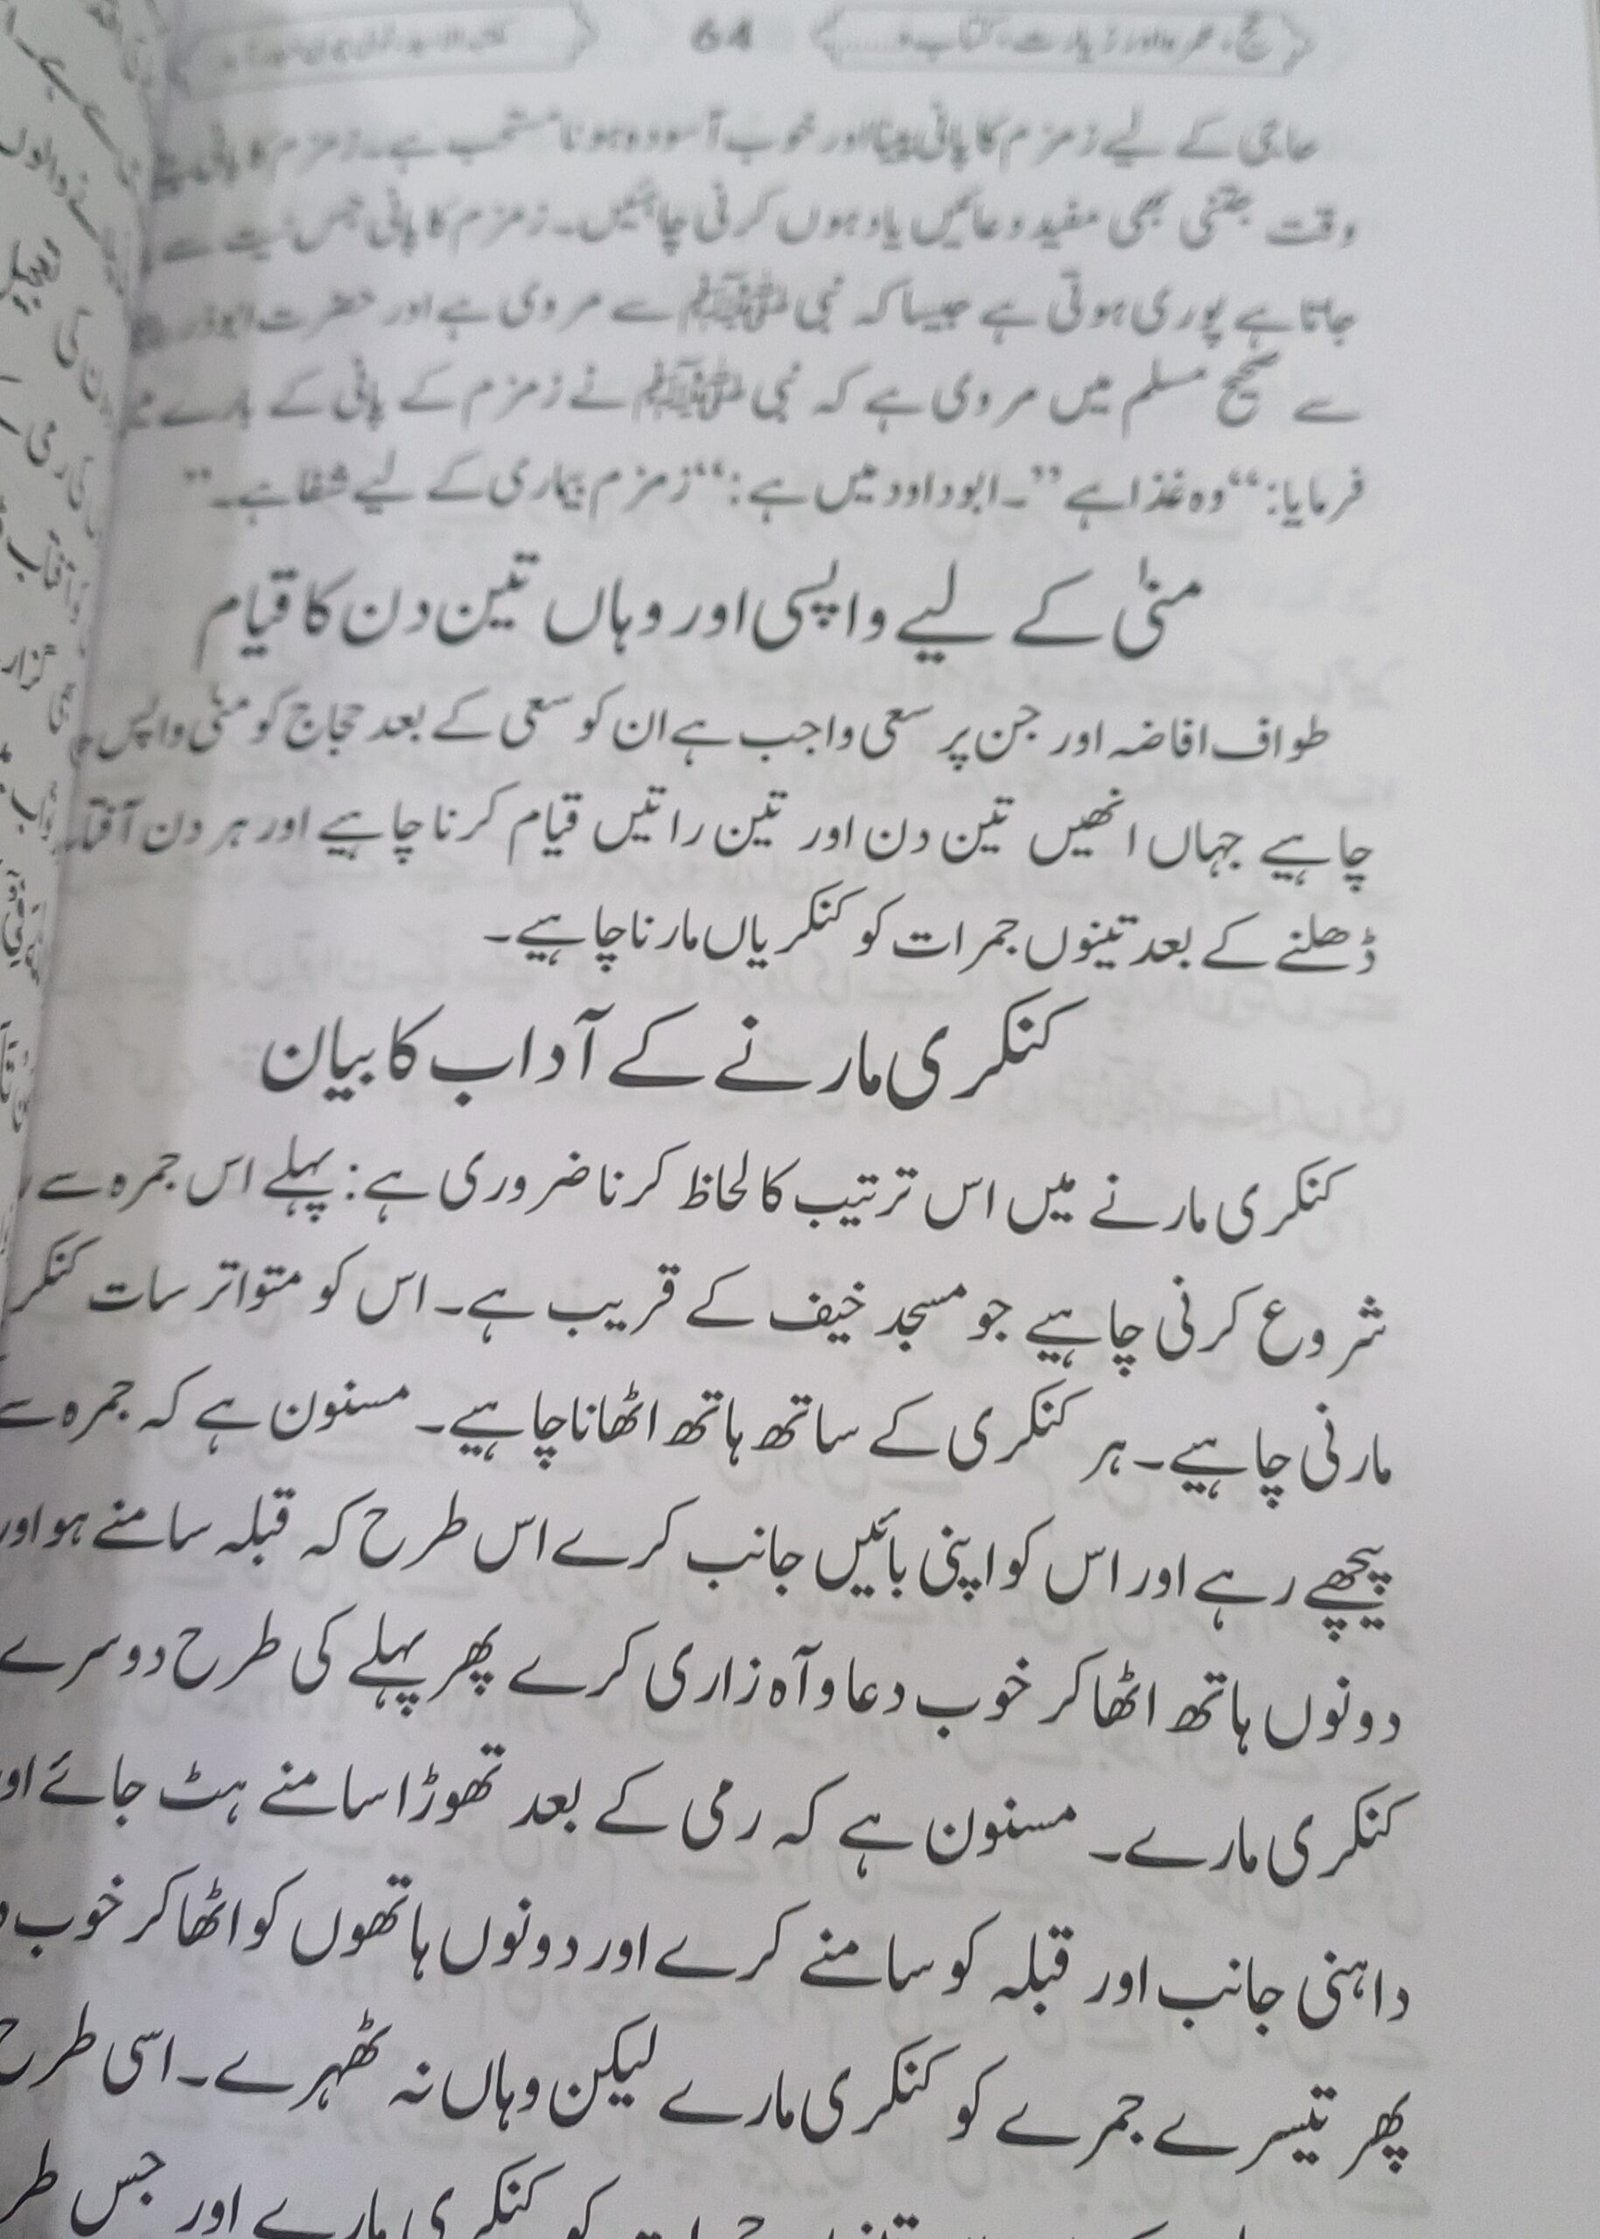 حج، عمرہ اور زیارت، کتاب و.....
64
حاجی کے لیے زمزم کا پانی پینا اور خوب آسودہ ہونا مستحب ہے۔ زمزم کا پانی
وقت جتنی بھی مفید دعائیں یاد ہوں کرنی چاہئیں۔ زمزم کا پانی جس نیت سے
جاتا ہے پوری ہوتی ہے جیسا کہ نبی ﷺ سے مروی ہے اور حضرت ابوذر
سے صحیح مسلم میں مروی ہے کہ نبی ﷺ نے زمزم کے پانی کے بارے
فرمایا: “وہ غذا ہے”۔ ابوداود میں ہے: “زمزم بیماری کے لیے شفا ہے۔”
منیٰ کے لیے واپسی اور وہاں تین دن کا قیام
طواف افاضہ اور جن پر سعی واجب ہے ان کو سعی کے بعد حجاج کو منیٰ واپس
چاہیے جہاں انھیں تین دن اور تین راتیں قیام کرنا چاہیے اور ہر دن
ڈھلنے کے بعد تینوں جمرات کو کنکریاں مارنا چاہیے۔
کنکری مارنے کے آداب کا بیان
کنکری مارنے میں اس ترتیب کا لحاظ کرنا ضروری ہے: پہلے اس جمرہ سے
شروع کرنی چاہیے جو مسجد خیف کے قریب ہے۔ اس کو متواتر سات کنکر
مارنی چاہیے۔ ہر کنکری کے ساتھ ہاتھ اٹھانا چاہیے۔ مسنون ہے کہ جمرہ سے
پیچھے رہے اور اس کو اپنی بائیں جانب کرے اس طرح کہ قبلہ سامنے ہو اور
دونوں ہاتھ اٹھا کر خوب دعا و آہ زاری کرے پھر پہلے کی طرح دوسرے
کنکری مارے۔ مسنون ہے کہ رمی کے بعد تھوڑا سامنے ہٹ جائے او
داہنی جانب اور قبلہ کو سامنے کرے اور دونوں ہاتھوں کو اٹھا کر خوب
پھر تیسرے جمرے کو کنکری مارے لیکن وہاں نہ ٹھہرے۔ اسی طرح
کو کنکری مارے اور جس طر